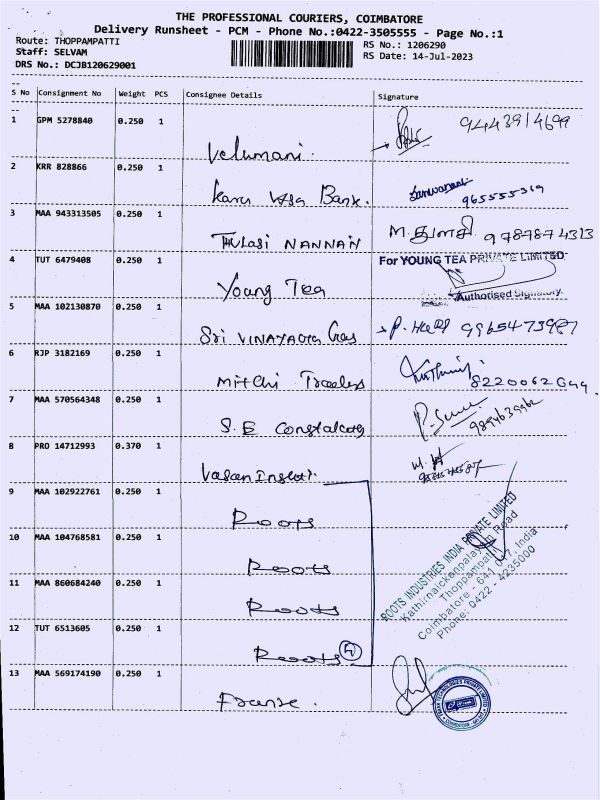 THE PROFESSIONAL COURIERS, COIMBATORE
Delivery Runsheet - PCM - Phone No.:0422-3505555 - Page No.:1
Route: THOPPAMPATTI
RS No.: 1206290
Staff: SELVAM
RS Date: 14-Jul-2023
DRS No.: DCJB120629001
S No Consignment No Weight PCS Consignee Details Signature
1 GPM 5278840 0.250 1 Velumani. 9443914699
2 KRR 828866 0.250 1 Bank. 965555319
3 MAA 943313505 0.250 1 THULASI NANNAN M. துளசி 9787874313
4 TUT 6479408 0.250 1 Young Tea For YOUNG TEA PRIVATE LIMITED
Authorised Signatory.
5 MAA 102130870 0.250 1 Sri VINAYAGA Gas 9965473987
6 RJP 3182169 0.250 1 Mitchi Traders 8220062
7 MAA 570564348 0.250 1 S.E
8 PRO 14712993 0.370 1 Vasan
9 MAA 102922761 0.250 1 Roots
10 MAA 104768581 0.250 1 Roots
11 MAA 860684240 0.250 1 Roots
12 TUT 6513605 0.250 1 Roots 4
ROOTS INDUSTRIES INDIA PRIVATE LIMITED
Kathirnaickenpalayam Road
Thoppampatti
Coimbatore - 641 017, India
Phone: 0422 - 4235000
13 MAA 569174190 0.250 1